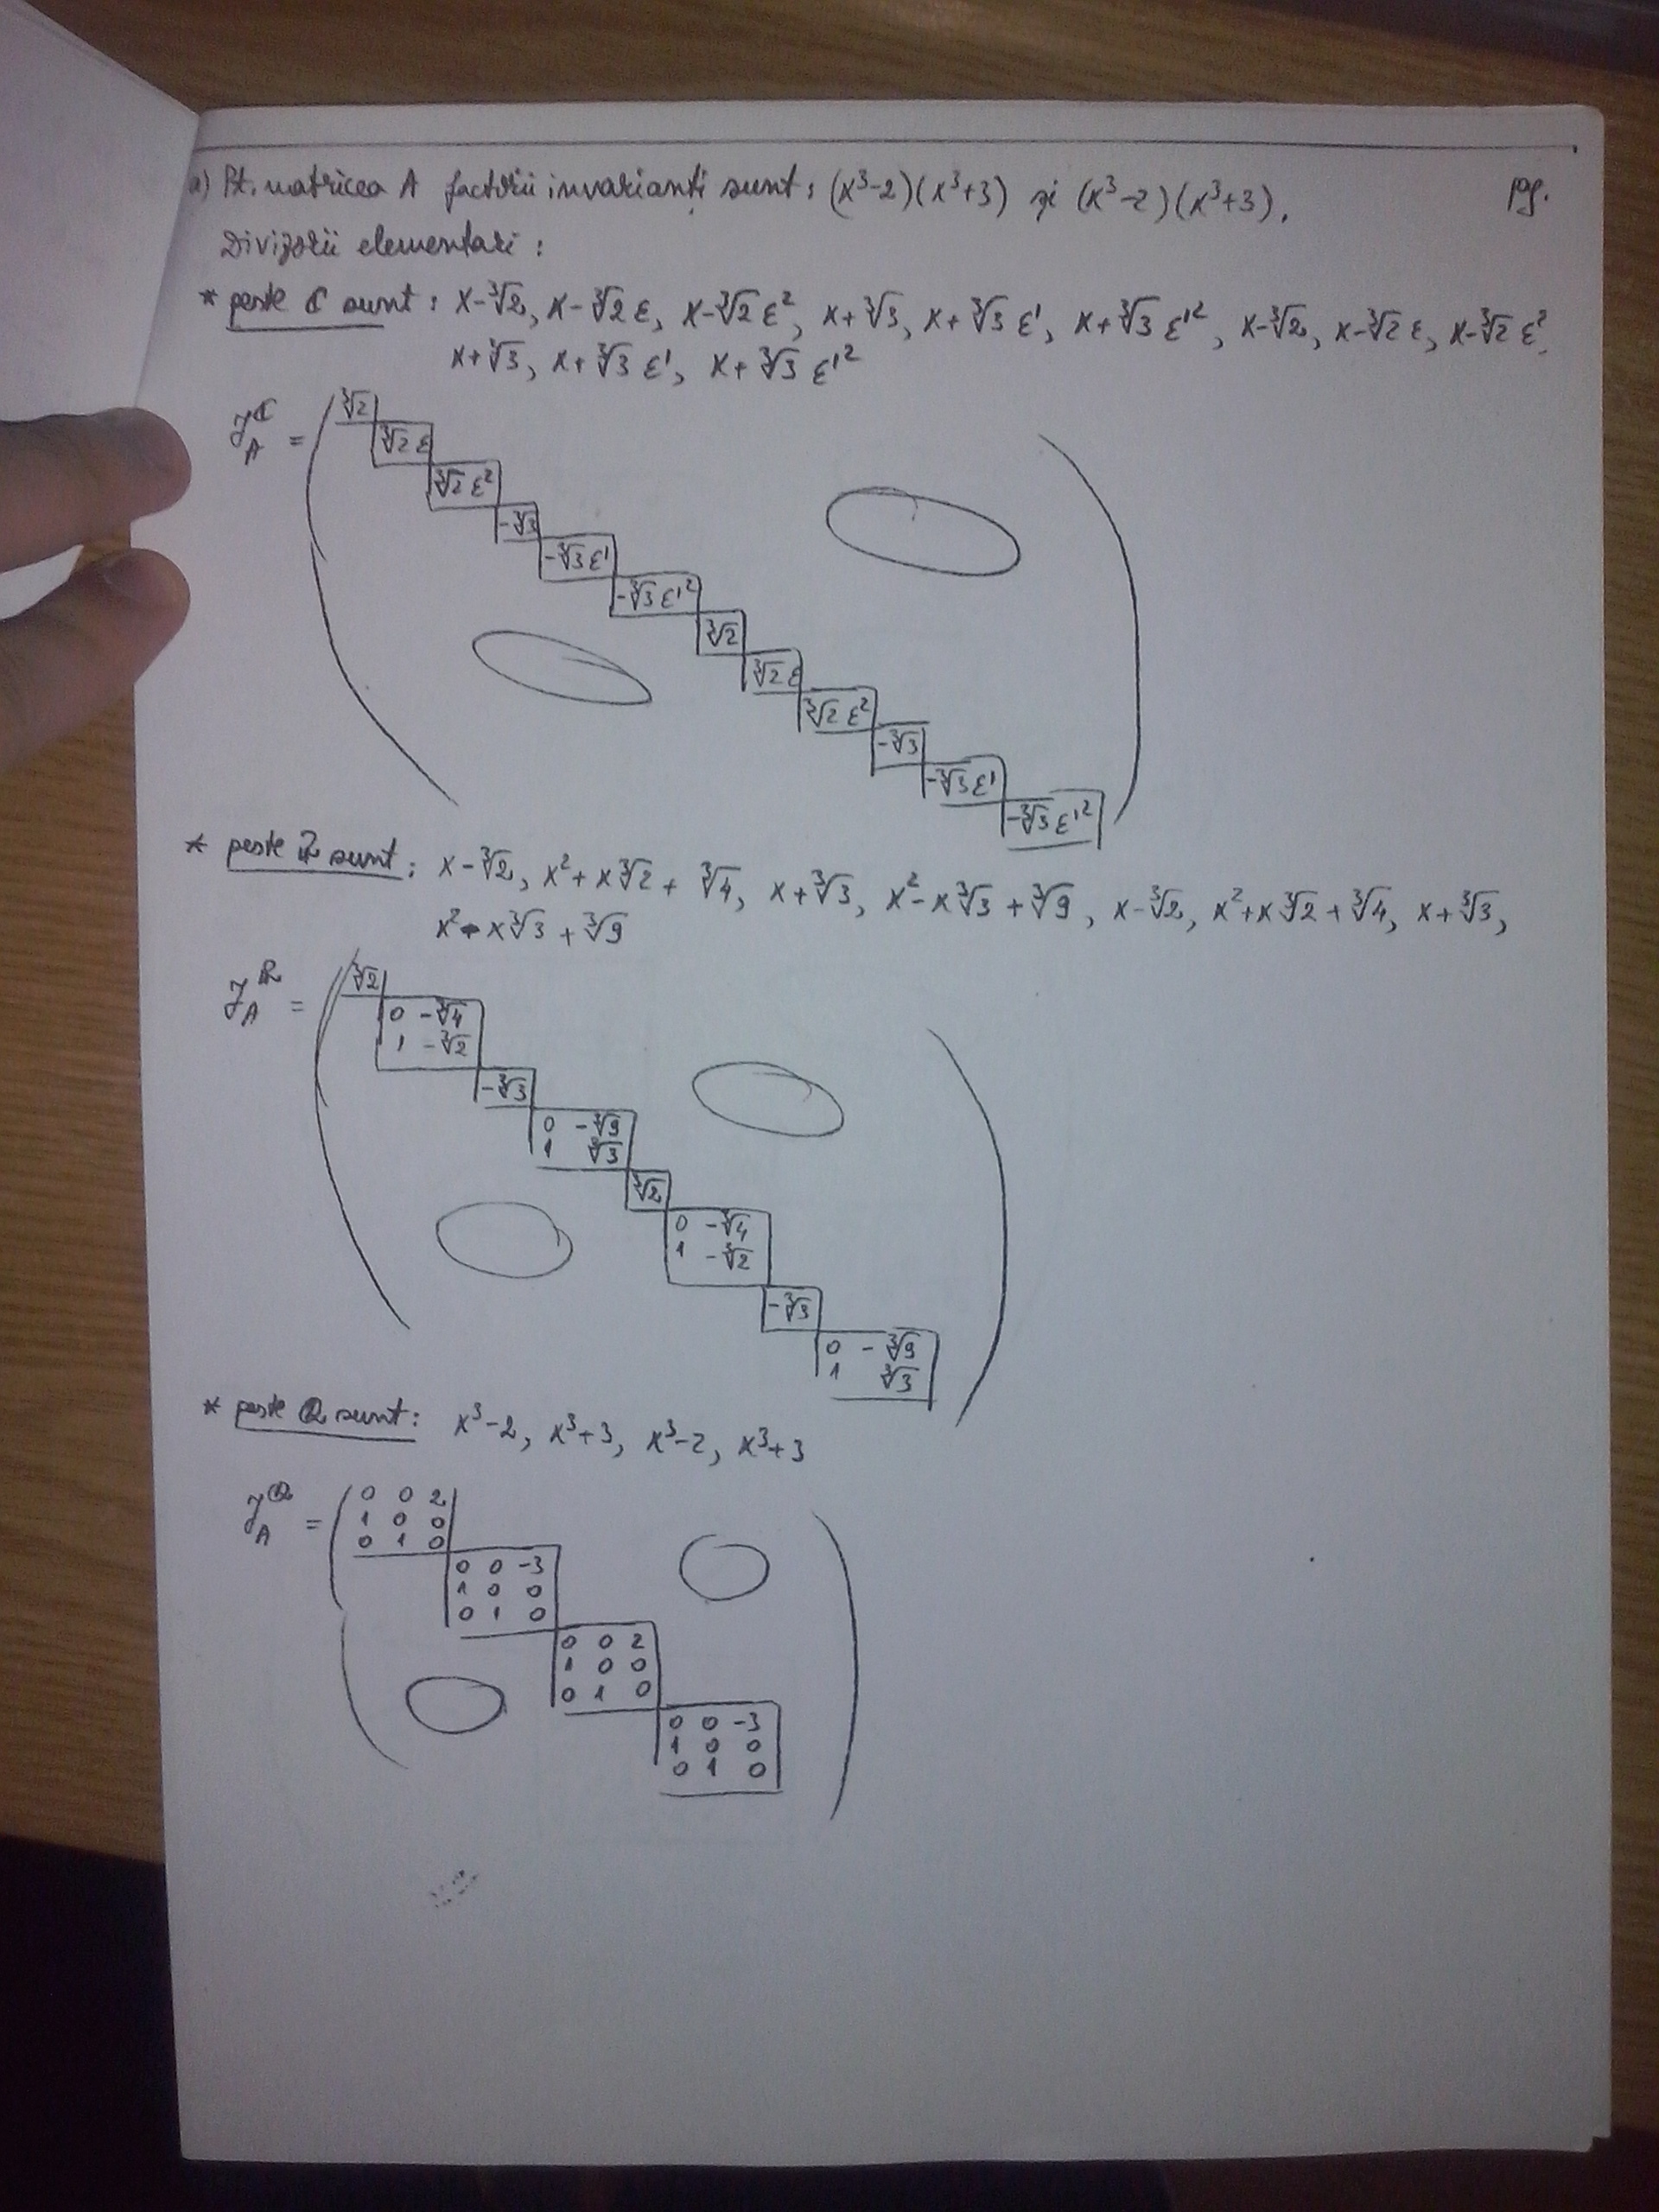 a) Pt. matricea A factorii invarianți sunt: (x³-2)(x³+3) și (x³-2)(x³+3).
pag.
Divizorii elementari:
* peste ℂ sunt: x-∛2, x-∛2 ε, x-∛2 ε², x+∛3, x+∛3 ε', x+∛3 ε'², x-∛2, x-∛2 ε, x-∛2 ε²,
x+∛3, x+∛3 ε', x+∛3 ε'²
J_A^ℂ =
∛2
∛2 ε
∛2 ε²
-∛3
-∛3 ε'
-∛3 ε'²
∛2
∛2 ε
∛2 ε²
-∛3
-∛3 ε'
-∛3 ε'²
* peste ℝ sunt: x-∛2, x²+x∛2+∛4, x+∛3, x²-x∛3+∛9, x-∛2, x²+x∛2+∛4, x+∛3,
x²-x∛3+∛9
J_A^ℝ =
∛2
0 -∛4
1 -∛2
-∛3
0 -∛9
1 ∛3
∛2
0 -∛4
1 -∛2
-∛3
0 -∛9
1 ∛3
* peste ℚ sunt: x³-2, x³+3, x³-2, x³+3
J_A^ℚ =
0 0 2
1 0 0
0 1 0
0 0 -3
1 0 0
0 1 0
0 0 2
1 0 0
0 1 0
0 0 -3
1 0 0
0 1 0